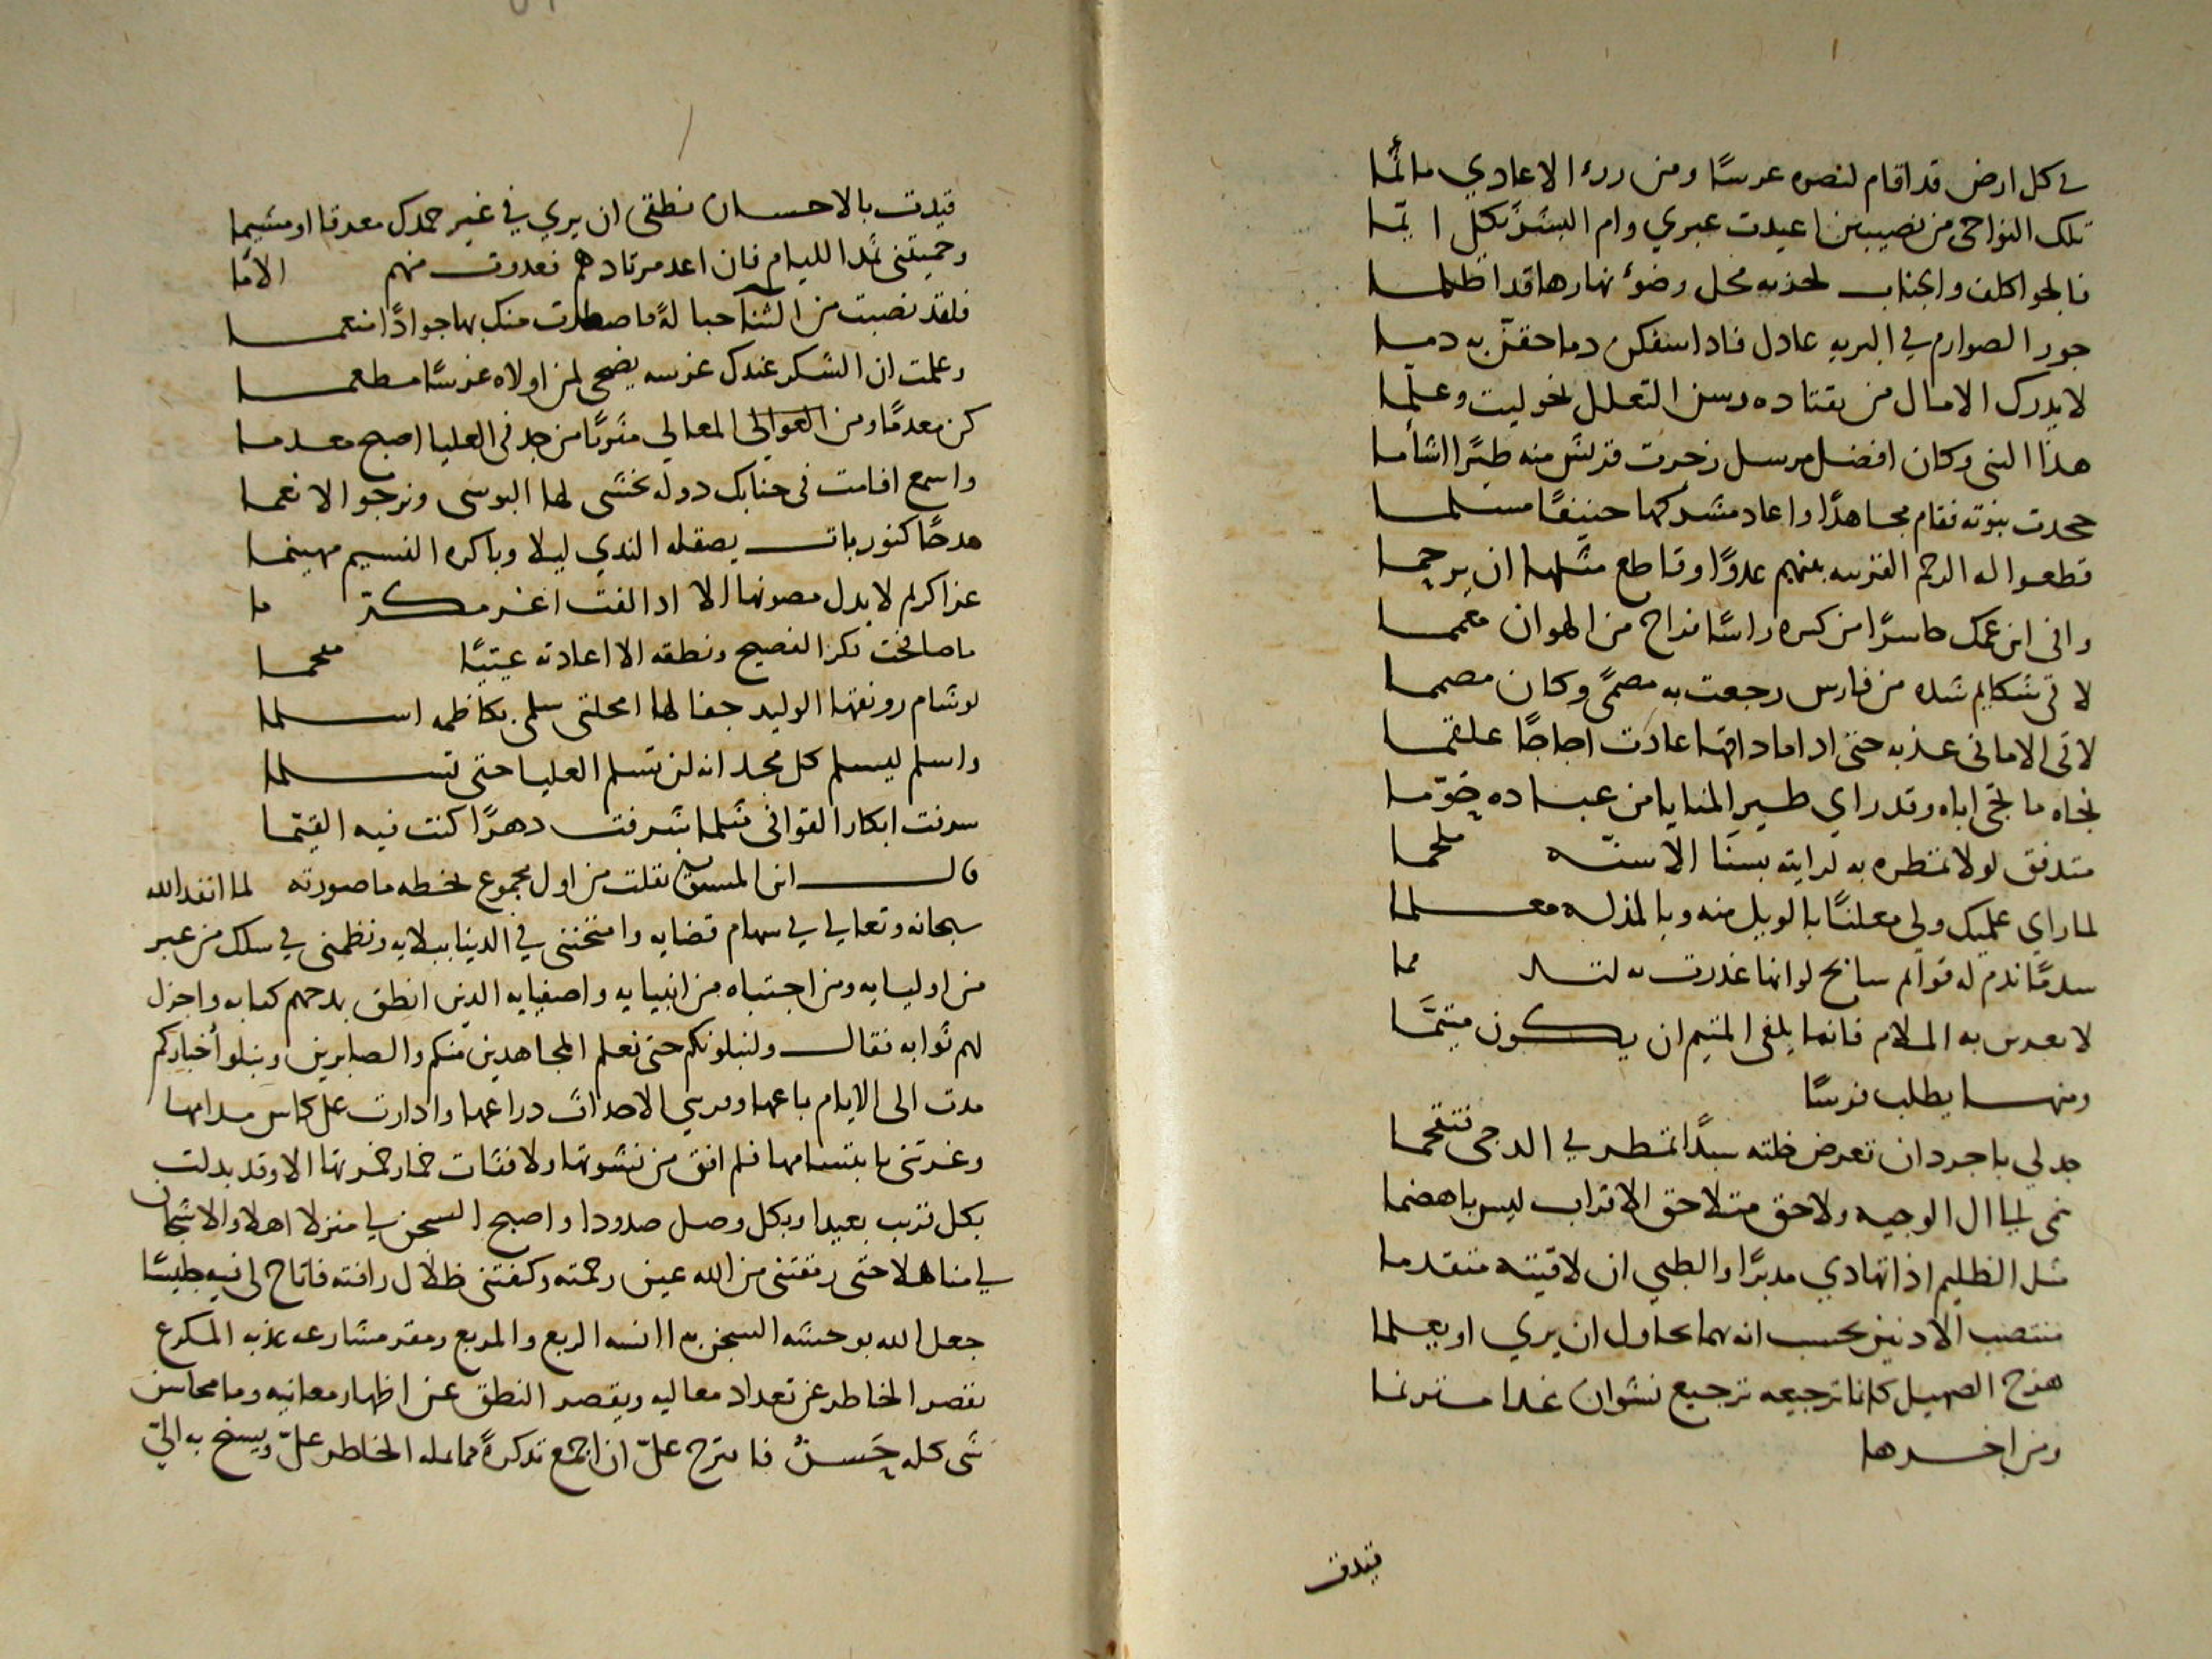 في كل ارض قد اقام لنصره عرسًا ومن ردء الاعادي مأتما
تلك النواحي من نصيبين اعيدت عبري وام البشر تكل ايما
فالجو اكلف والجناب لحذبه محل وضوء نهارها قد اظلما
جور الصوارم في البريه عادل فاذا سفكن دما حقن به دما
لا يدرك الامال من يقتاده رسن التعلل نحو ليت وعلما
هذا النبي وكان افضل مرسل زخرت قريش منه طيرًا اشأما
جحدت نبوته فقام مجاهدًا واعاد مشركها حنيفًا مسلما
قطعوا له الرحم القريبه منهم عدوًا وقاطع مثلها ان يرحما
وافى ابن عمك حاسرًا من كسره راسًا فراح من الهوان معمما
لاقى شكايم شده من فارس رجعت به مصمىً وكان مصمما
لاقى الاماني عذبه حتى اذا ما ذاقها عادت اجاجًا علقما
نجاه ما نجى اباه وقد راى طير المنايا من عباده حوّما
متدفق لولا تمطره به لرايته بسنا الاسنّه ملجما
لما راى عمليك ولى معلنًا بالويل منه وبالمذله معلما
سدمًا نذم له قوائم سابح لو انها غدرت به لتند مما
لا تعدين به الملام فانما يلفى المتيم ان يكون متيمًا
ومنها يطلب فرسًا
جد لي باجرد ان تعرض خلته سيدًا تمطر في الدجى متقحما
نمى لي ال الوجيه ولاحق متلاحق الاقراب ليس باهضما
مثل الظليم اذا تهادي مدبرًا والظبي ان لاقيته متقدما
منتصب الاذنين يحسب انه مهما يحاول ان يري او يعلما
هزج الصهيل كانما ترجيعه ترجيع نشوان غدا مترنما
ومن اخرها
قيدت
قيدت بالاحسان نطقى ان يري في غير حمدك معرقا او مشيما
وحميتنى ثمدا الليام فان اعد مرتادهم فعدوت منهم الاما
فلقد نصبت من الثنا حبالةً فاصطدت منك بها جوادًا منعما
وعلمت ان الشكر عندك غرسه يضحى لمن اولاه غرسًا مطعما
كن معدمًا ومن العوالي المعالي مثريًا من جد في العليا اصبح معدما
واسمع اقامت في جنابك دوله تخشى لها البوسى ونرجو الانعما
مدحًا كنور بات يصقله الندي ليلا وباكره النسيم مهينما
عزا كرام لا يدل مصونها الا اذا لفت اغر مكرّ ما
ما صافحت فكر الفصيح ونطقه الا اعادته عيتيًا مفحما
لو شام رونقها الوليد جفا لها امحلتى سلمى بكاظمه اسلما
واسلم ليسلم كل مجد انه لن تسلم العليا حتى تسلما
سرفت ابكار القوافى مثلما شرفت دهرًا كنت فيه القيّما
قال ابن المستوفي نقلت من اول مجموع بخطه ما صورته لما انفذ الله
سبحانه وتعالي في سهام قضايه وامتحننى في الدنيا ببلايه ونظمنى في سلك من عبر
من اوليايه ومن اجتباه من انبيايه واصفيايه الذين انطق بمدحهم كتابه واجزل
لهم ثوابه فقال ولنبلونكم حتى نعلم المجاهدين منكم والصابرين ونبلو أخباركم
مدت الى الايام باعها ومرسي الاحداث دراعها وادارت على كاس مدامها
وغرتنى بابتسامها فلم افق من نشوتها ولا فثات خمار خمرتها الا وقد بدلت
بكل قريب بعيدا وبكل وصل صدودا واصبح السجن لي منزلا اهلا والاشجان
لي مناهلا حتى رمقتنى من الله عين رحمته وكفتنى ظلال رافته فاتاح لي فيه جليسًا
جعل الله بوحشه السجن به انسه الربع والمربع ومقر مشارعه عذبه المكرع
يقصر الخاطر عن تعداد معاليه ويقصر النطق عن اظهار معانيه وما محاسن
شى كله حَسنٌ فاقترح علىّ ان اجمع تذكرةً مما يمله الخاطر علىّ ويسنح به اليّ